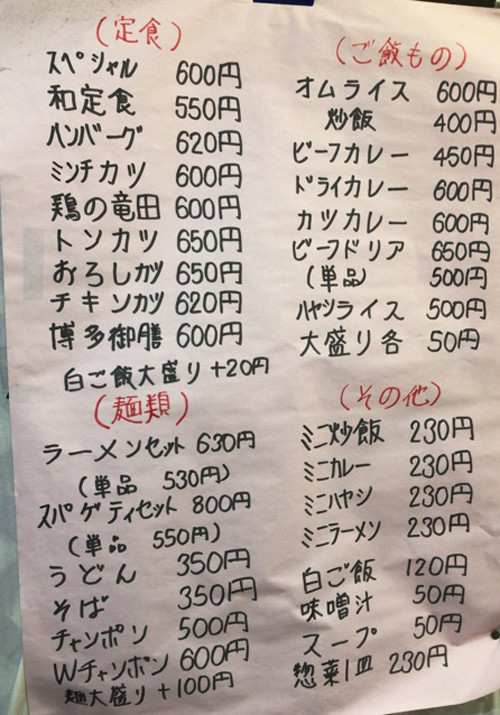 (定食)
スペシャル 600円
和定食 550円
ハンバーグ 620円
ミンチカツ 600円
鶏の竜田 600円
トンカツ 650円
おろしカツ 650円
チキンカツ 620円
博多御膳 600円
白ご飯大盛り +20円
(麺類)
ラーメンセット 630円
(単品 530円)
スパゲティセット 800円
(単品 550円)
うどん 350円
そば 350円
チャンポン 500円
Wチャンポン 600円
麺大盛り +100円
(ご飯もの)
オムライス 600円
炒飯 400円
ビーフカレー 450円
ドライカレー 600円
カツカレー 600円
ビーフドリア 650円
(単品) 500円
ハヤシライス 500円
大盛り各 50円
(その他)
ミニ炒飯 230円
ミニカレー 230円
ミニハヤシ 230円
ミニラーメン 230円
白ご飯 120円
味噌汁 50円
スープ 50円
惣菜1皿 230円